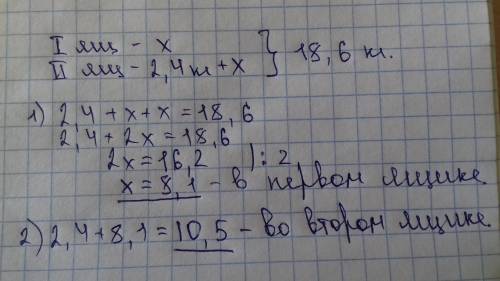 I ящ - x } 18,6 кг.
II ящ - 2,4 кг + x
1) 2,4 + x + x = 18,6
2,4 + 2x = 18,6
2x = 16,2 ) : 2
x = 8,1 - в первом ящике
2) 2,4 + 8,1 = 10,5 - во втором ящике.